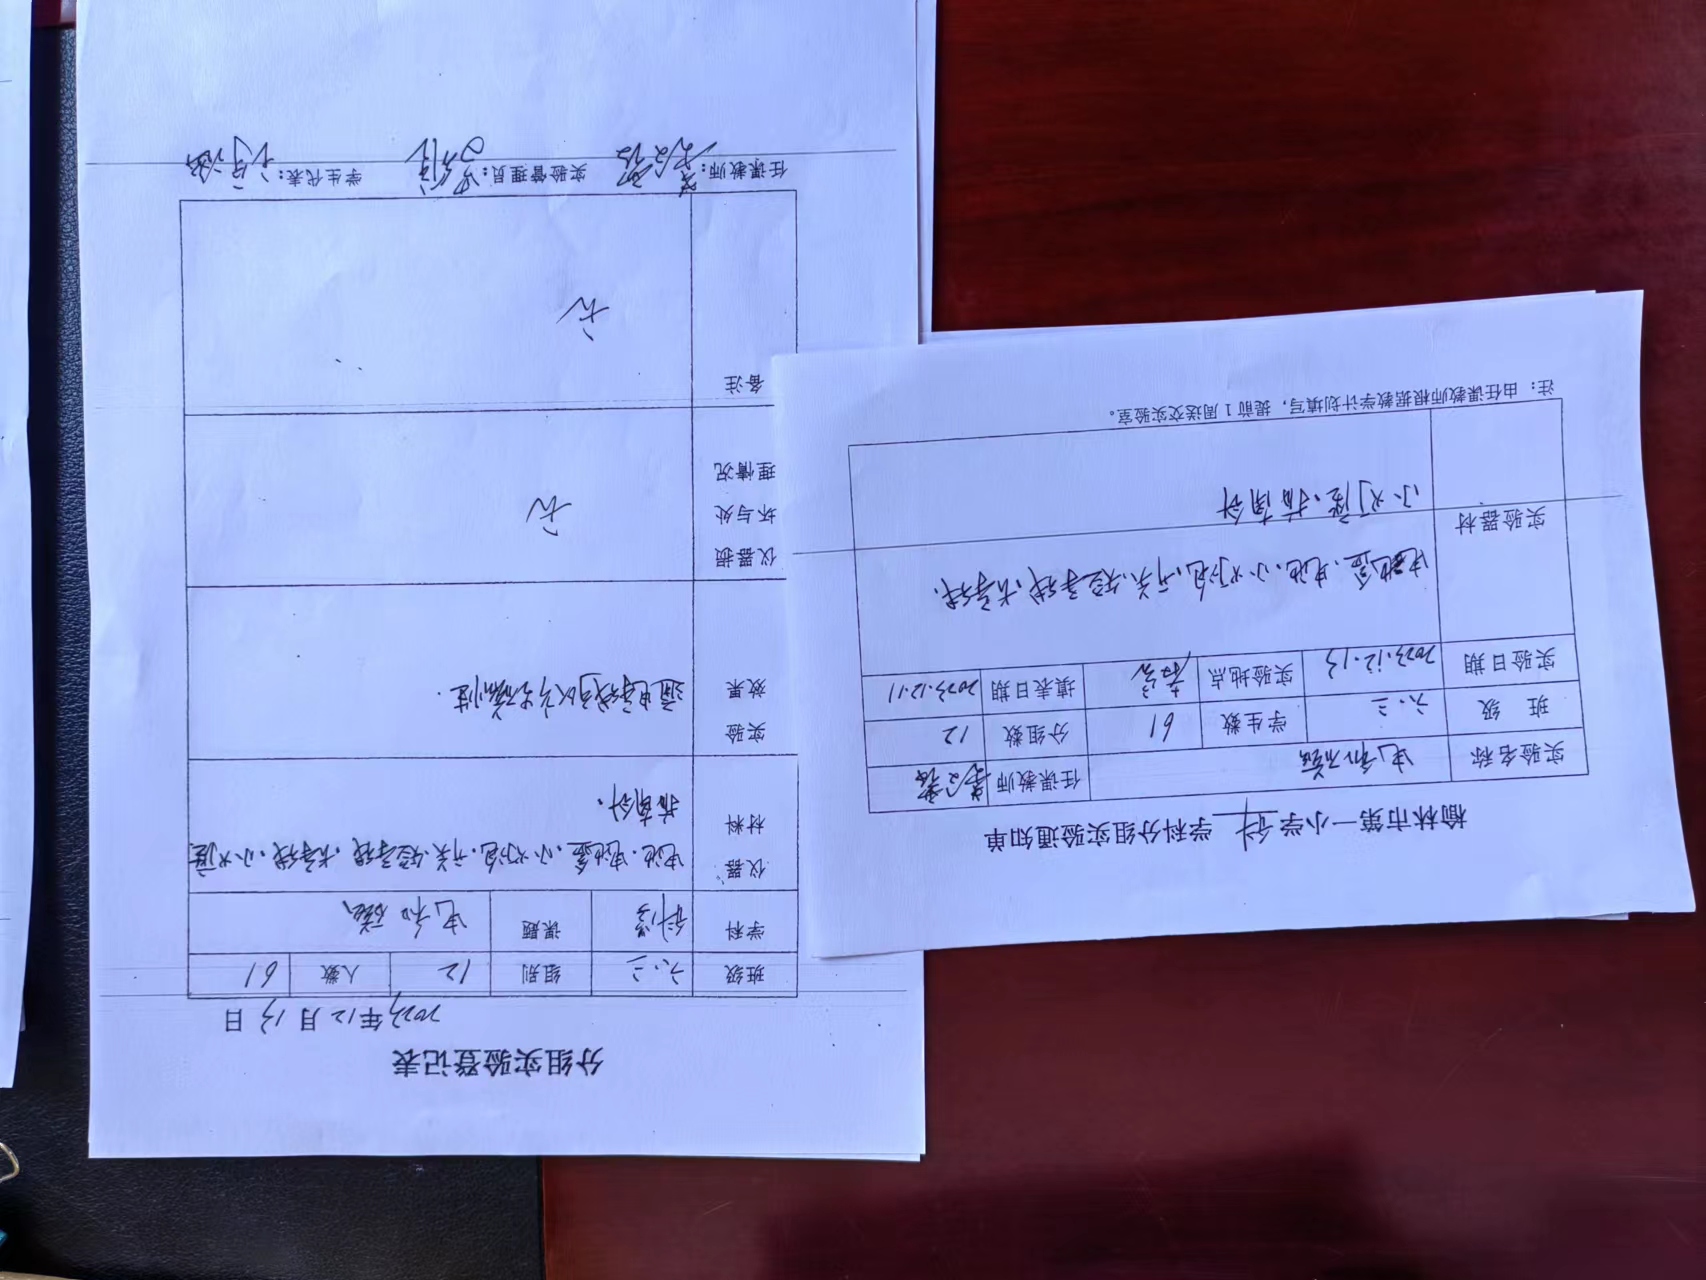 分组实验登记表
2023年12月13日
班级 六.三 组别 12 人数 61
学科 科学 课题 电和磁
仪器 电池.电池盒.小灯泡.开关.短导线.长导线.小灯座
材料 指南针.
实验 通电导线可以产生磁性.
效果
仪器损
坏与处 无
理情况
备注 无
任课教师: 实验管理员: 学生代表:
榆林市第一小学 科 学科分组实验通知单
实验名称 电和磁 任课教师
班 级 六.三 学生数 61 分组数 12
实验日期 2023.12.13 实验地点 填表日期 2023.12.11
实验器材 电池盒.电池.小灯泡.开关.短导线.长导线.
小灯座.指南针
注：由任课教师根据教学计划填写，提前1周送交实验室。